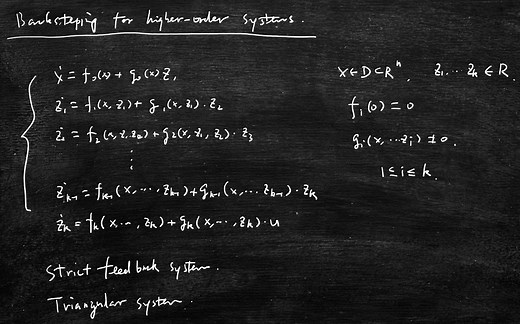 Backsteping for higher-order systems.
ẋ = f₀(x) + g₀(x) z₁
ż₁ = f₁(x, z₁) + g₁(x, z₁) · z₂
ż₂ = f₂(x, z₁, z₂) + g₂(x, z₁, z₂) · z₃
⋮
ż_{k-1} = f_{k-1}(x, ⋯, z_{k-1}) + g_{k-1}(x, ⋯ z_{k-1}) · z_k
ż_k = f_k(x, ⋯, z_k) + g_k(x, ⋯, z_k) · u
x ∈ D ⊂ Rⁿ, z₁ ⋯ z_k ∈ R.
f_i(0) = 0
g_i(x, ⋯ z_i) ≠ 0.
1 ≤ i ≤ k.
Strict feedback system.
Triangular system.